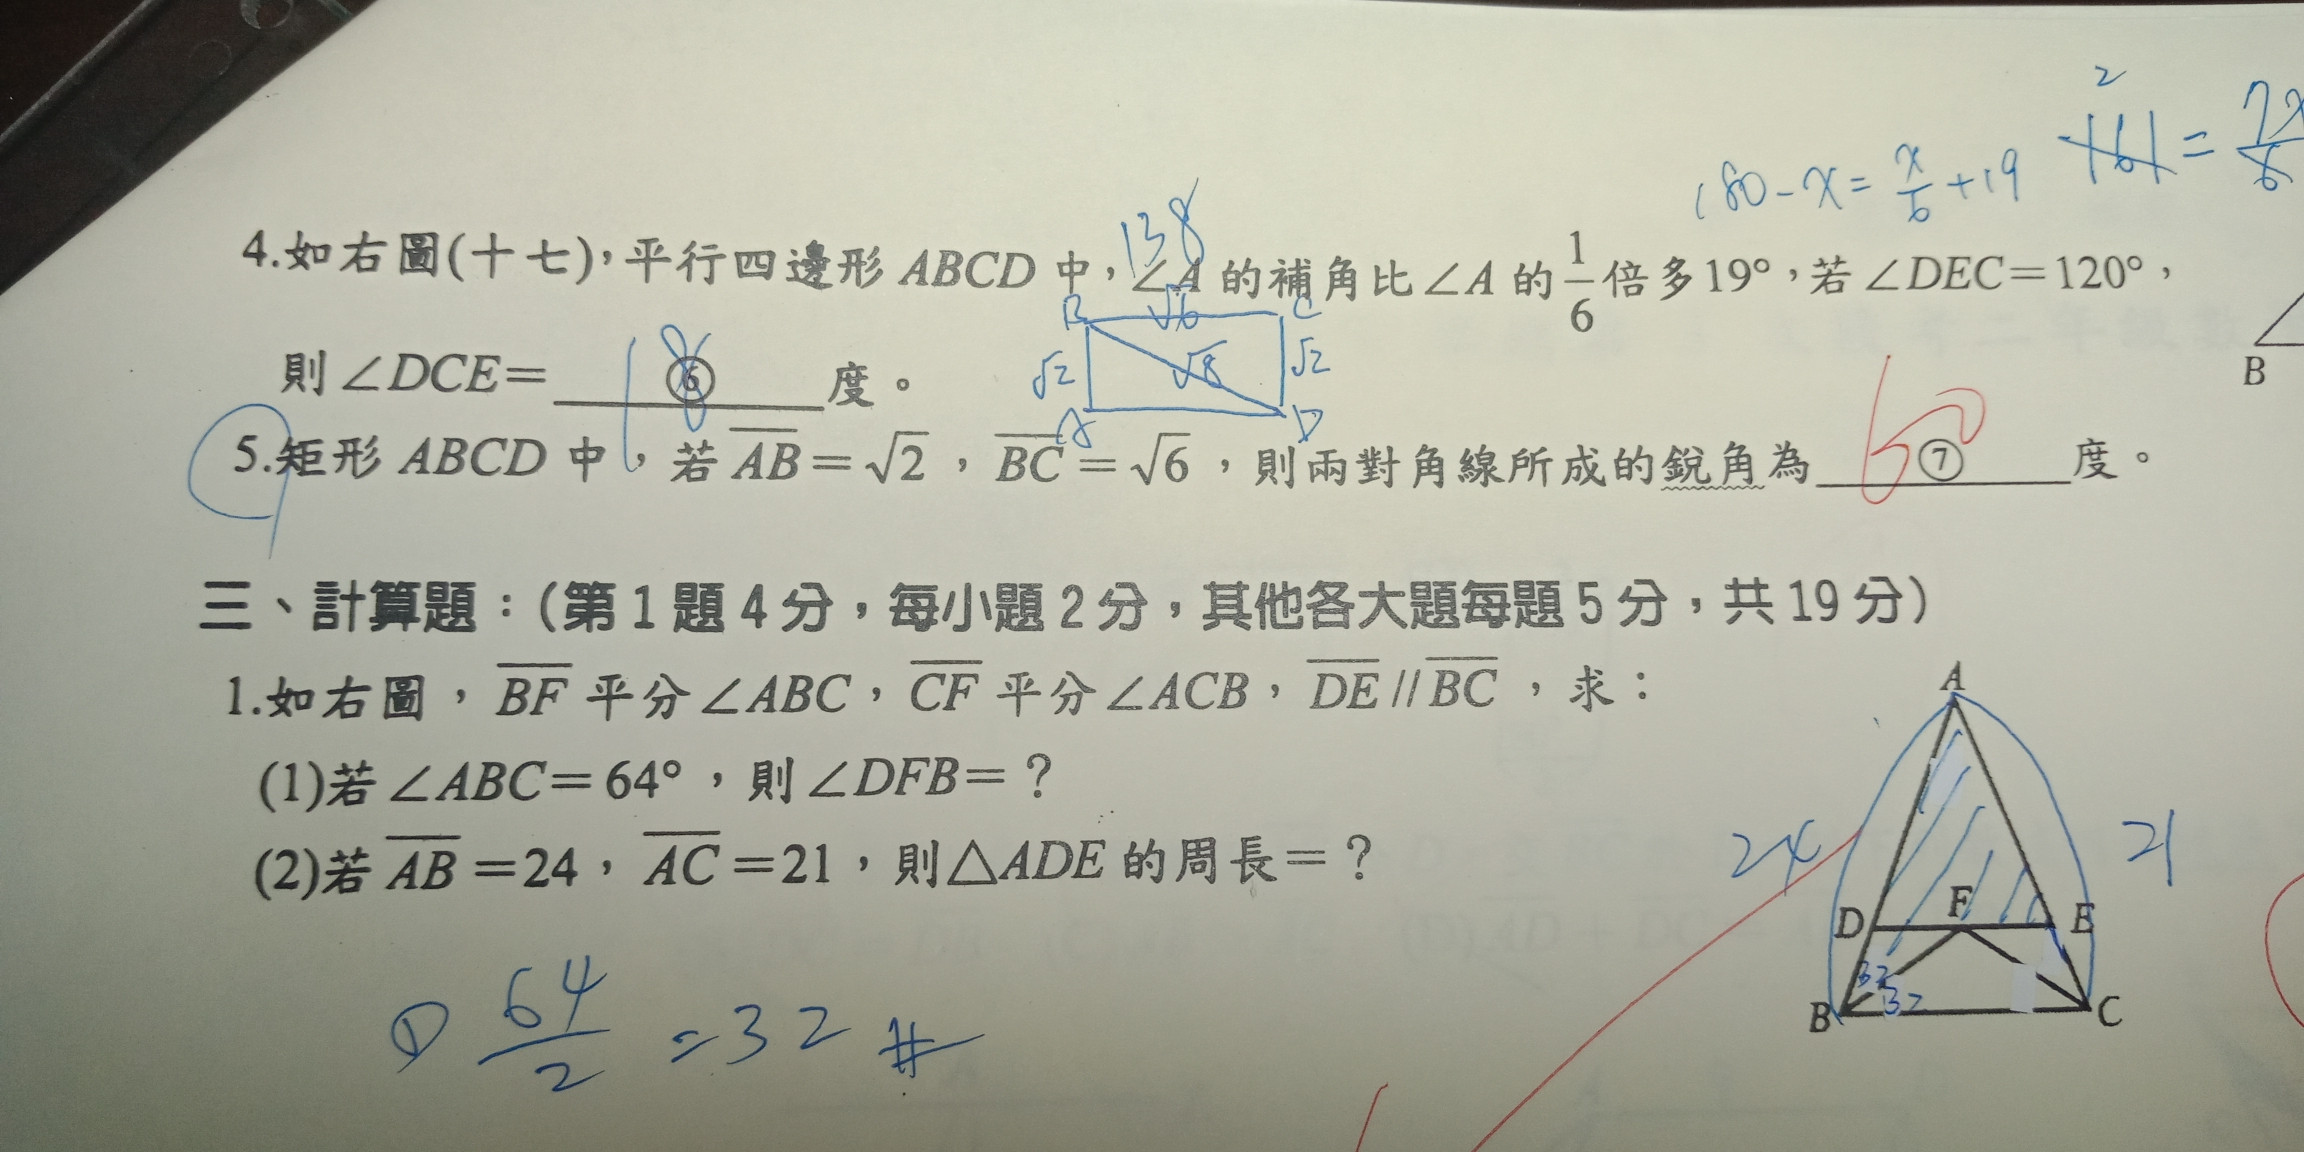 2
180-x=x/6+19
161=7x/6
138
4.如右圖(十七)，平行四邊形 ABCD 中，∠A 的補角比∠A 的1/6倍多19°，若∠DEC=120°，
則∠DCE= 18 ⑥ 度。
B √6 C
√2 √8 √2
A D
B
5.矩形 ABCD 中，若 AB=√2，BC=√6，則兩對角線所成的銳角為 60 ⑦ 度。
三、計算題：(第1題4分，每小題2分，其他各大題每題5分，共19分)
1.如右圖，BF 平分∠ABC，CF 平分∠ACB，DE//BC，求：
(1)若∠ABC=64°，則∠DFB=？
(2)若 AB=24，AC=21，則△ADE 的周長=？
A
24 21
D F E
32
32
B C
① 64/2=32 #